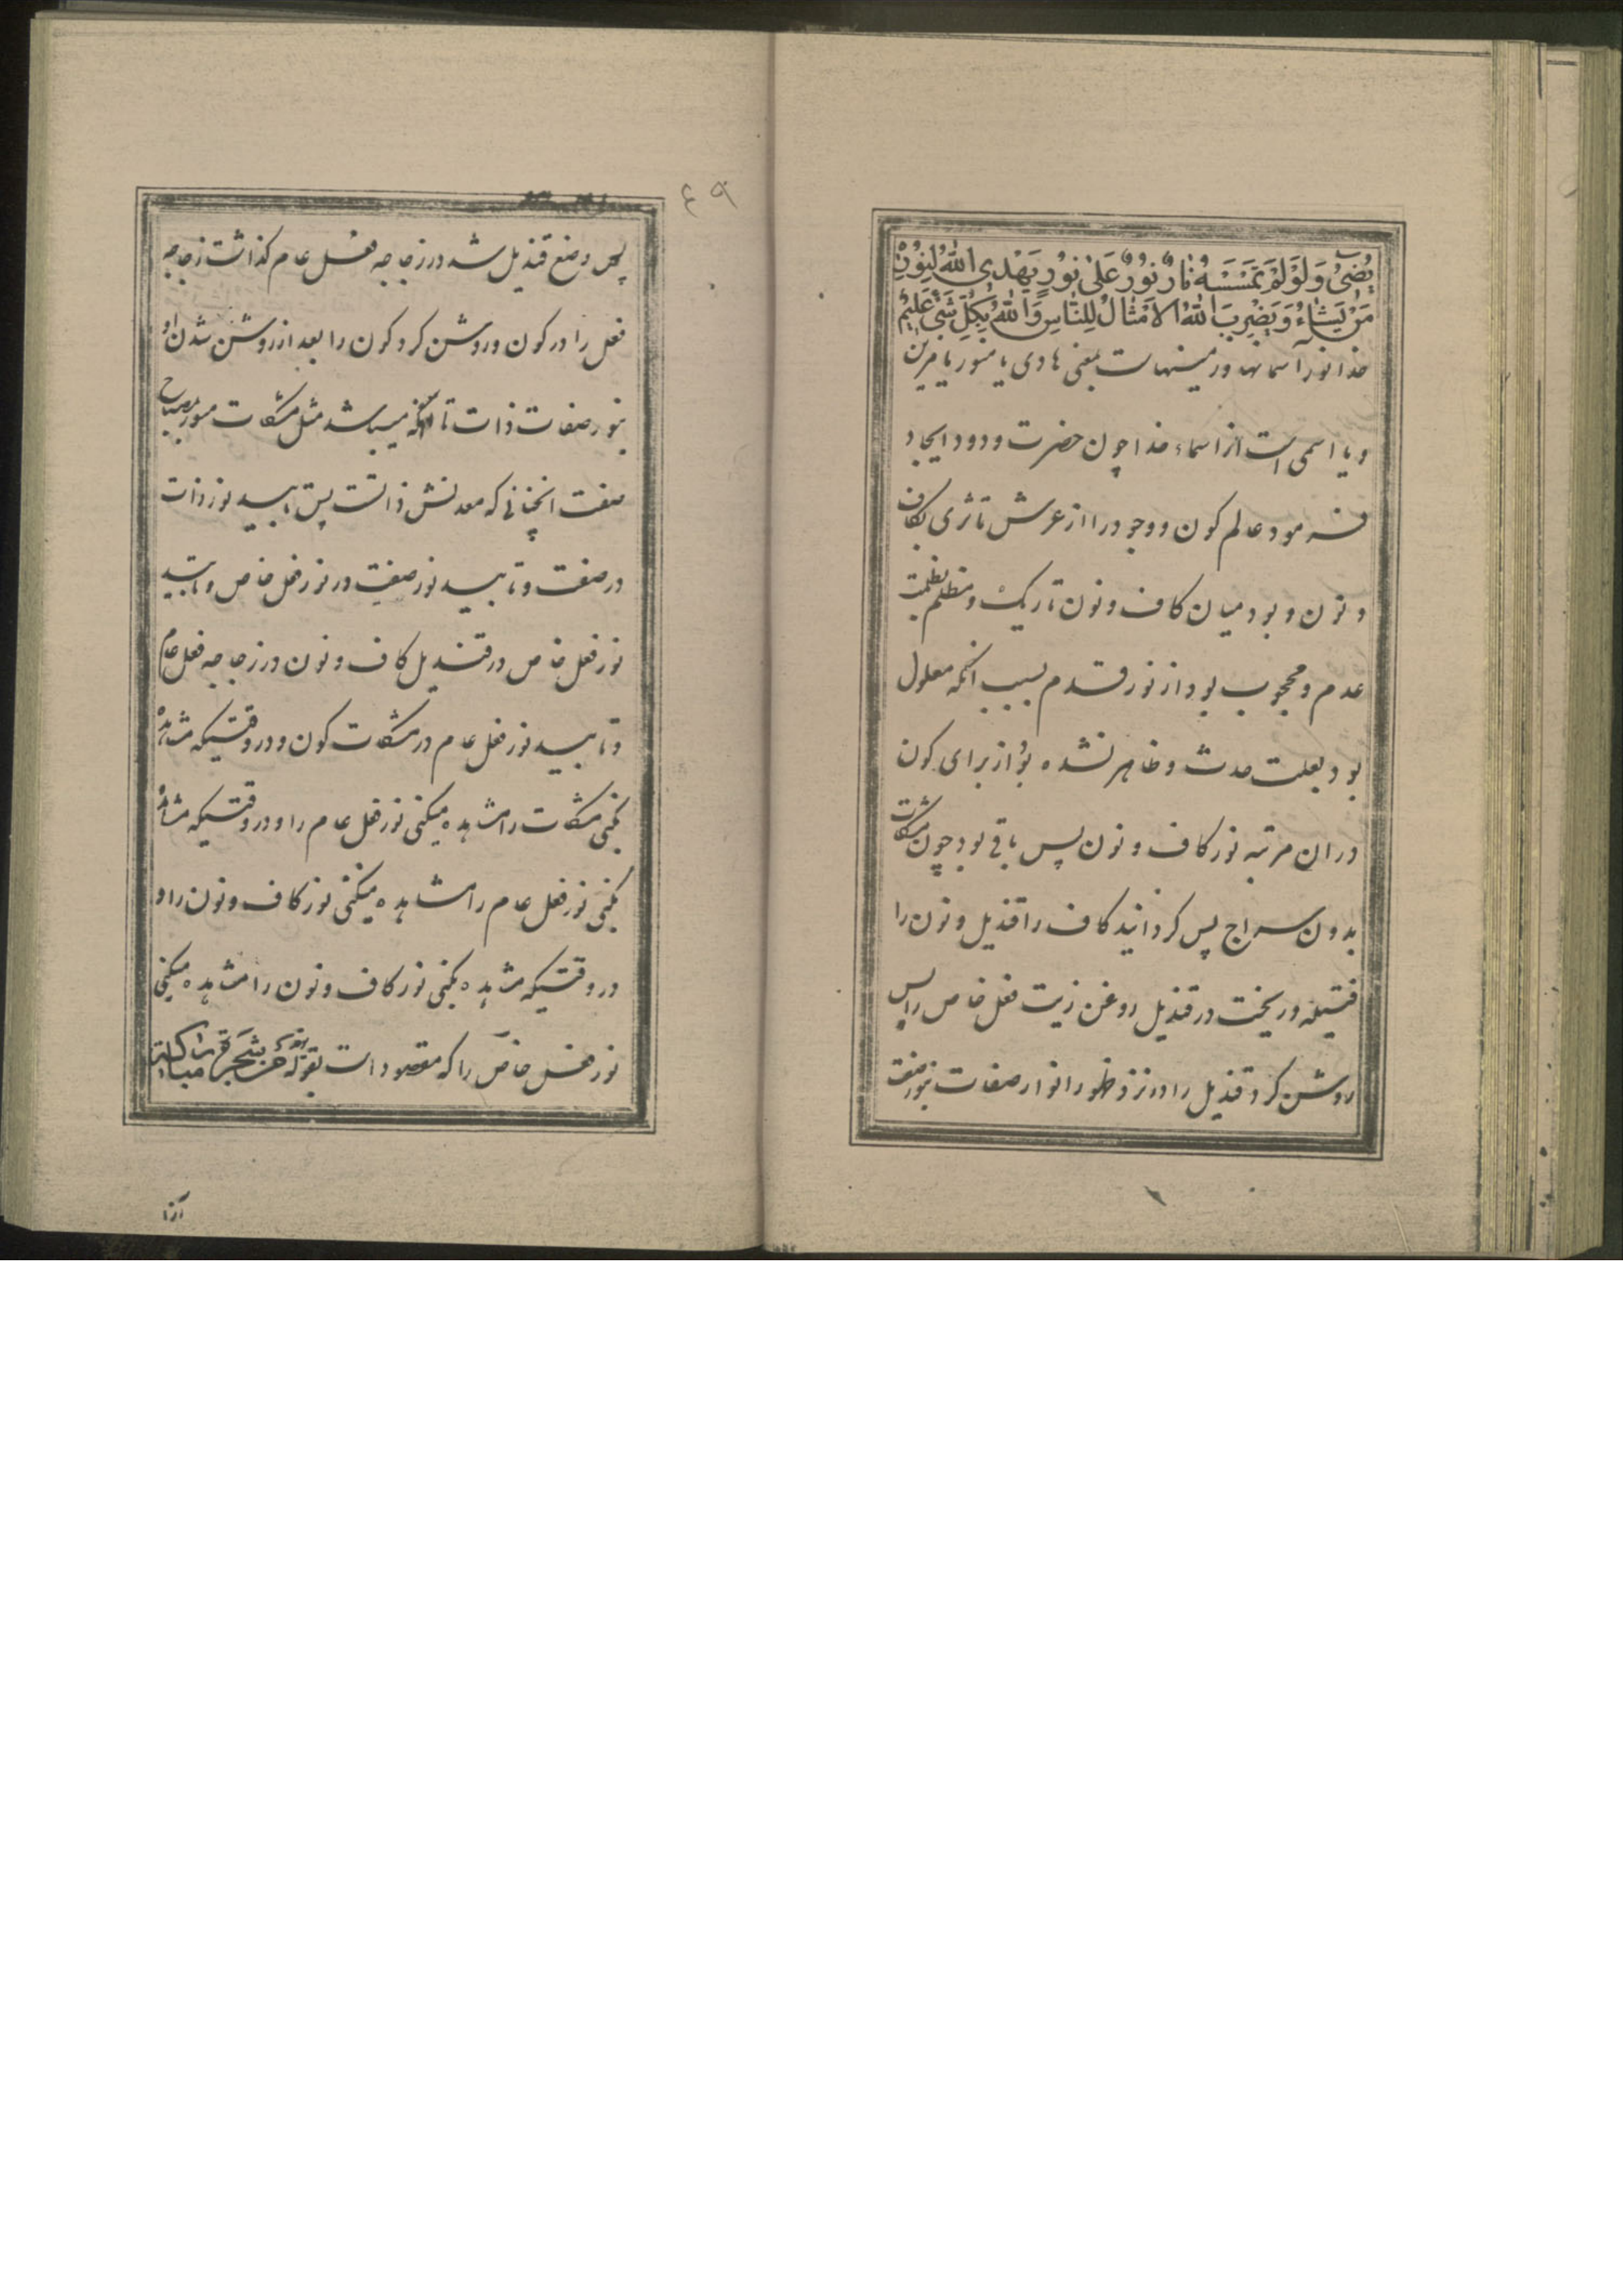 يُضِیءُ وَلَوْ لَمْ تَمْسَسْهُ نَارٌ نُورٌ عَلَىٰ نُورٍ يَهْدِی اللّٰهُ لِنُورِهِ
مَنْ يَشَاءُ وَيَضْرِبُ اللّٰهُ الْاَمْثَالَ لِلنَّاسِ وَاللّٰهُ بِكُلِّ شَیْءٍ عَلِيمٌ
خدا نور اسمانها و زمینهاست بمعنی هادی یا منور یا مزین
و یا اسمی است از اسماء خدا چون حضرت ودود ایجاد
فرمود عالم کون و وجود را از عرش تا ثری بکاف
و نون و بود میان کاف و نون تاریک و مظلم بظلمت
عدم و محجوب بود از نور قدم بسبب انکه معلول
بود بعلت حدث و ظاهر نشده بود از برای کون
دران مرتبه نور کاف و نون پس باقی بود چون مشکات
بدون سراج پس کردانید کاف را قندیل و نون را
فتیله و ریخت در قندیل روغن زیت فعل خاص را پس
روشن کرد قندیل را در نزد ظهور انوار صفات بنور صفت
٤٩
پس وضع قندیل شد در زجاجه فعل عام کذاشت زجاجه
فعل را در کون و روشن کرد کون را بعد از روشن شدن او
بنور صفات ذات تا انکه میباشد مثل مشکات منور بمصباح
صفت انچنانی که معدنش ذاتست پس تابید نور ذات
در صفت و تابید نور صفت در نور فعل خاص و تابید
نور فعل خاص در قندیل کاف و نون در زجاجه فعل عام
و تابید نور فعل عام در مشکات کون و در وقتیکه مشاهده
بکنی مشکات را مشاهده میکنی نور فعل عام را و در وقتیکه مشاهده
بکنی نور فعل عام را مشاهده میکنی نور کاف و نون را و
در وقتیکه مشاهده بکنی نور کاف و نون را مشاهده میکنی
نور فعل خاص را که مقصود است بقوله من شجرة مباركة